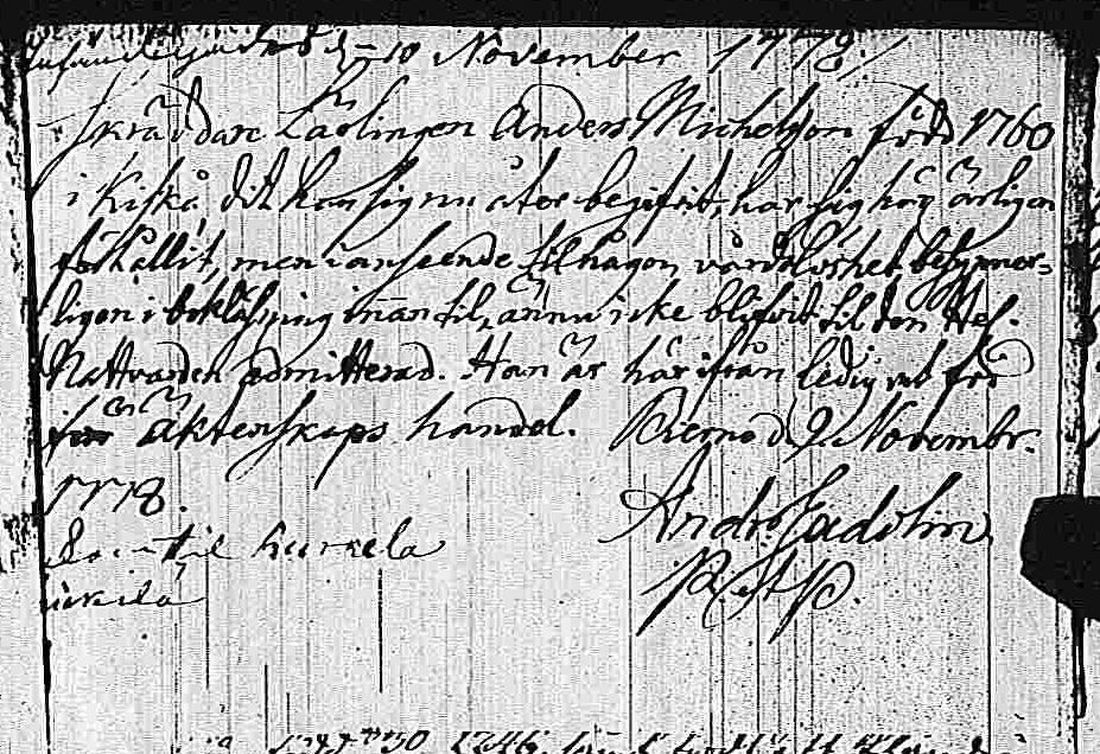 d. 10 November 1778./
Skräddare Lärlingen Anders Michelsson född 1760
i Kisko, dit han sig nu åter begifvit, har sig här ärligen
förhållit, men i anseende til någon vårdslöshet,
ligen i innan til, ännu icke blifvit til den Hel.
Nattvarden admitterad. Han är härifrån ledig ut för
för äktenskaps handel. Bierno d. 9 Novembr.
1778.
And: Ladohn
til Kurkela
P. et P.